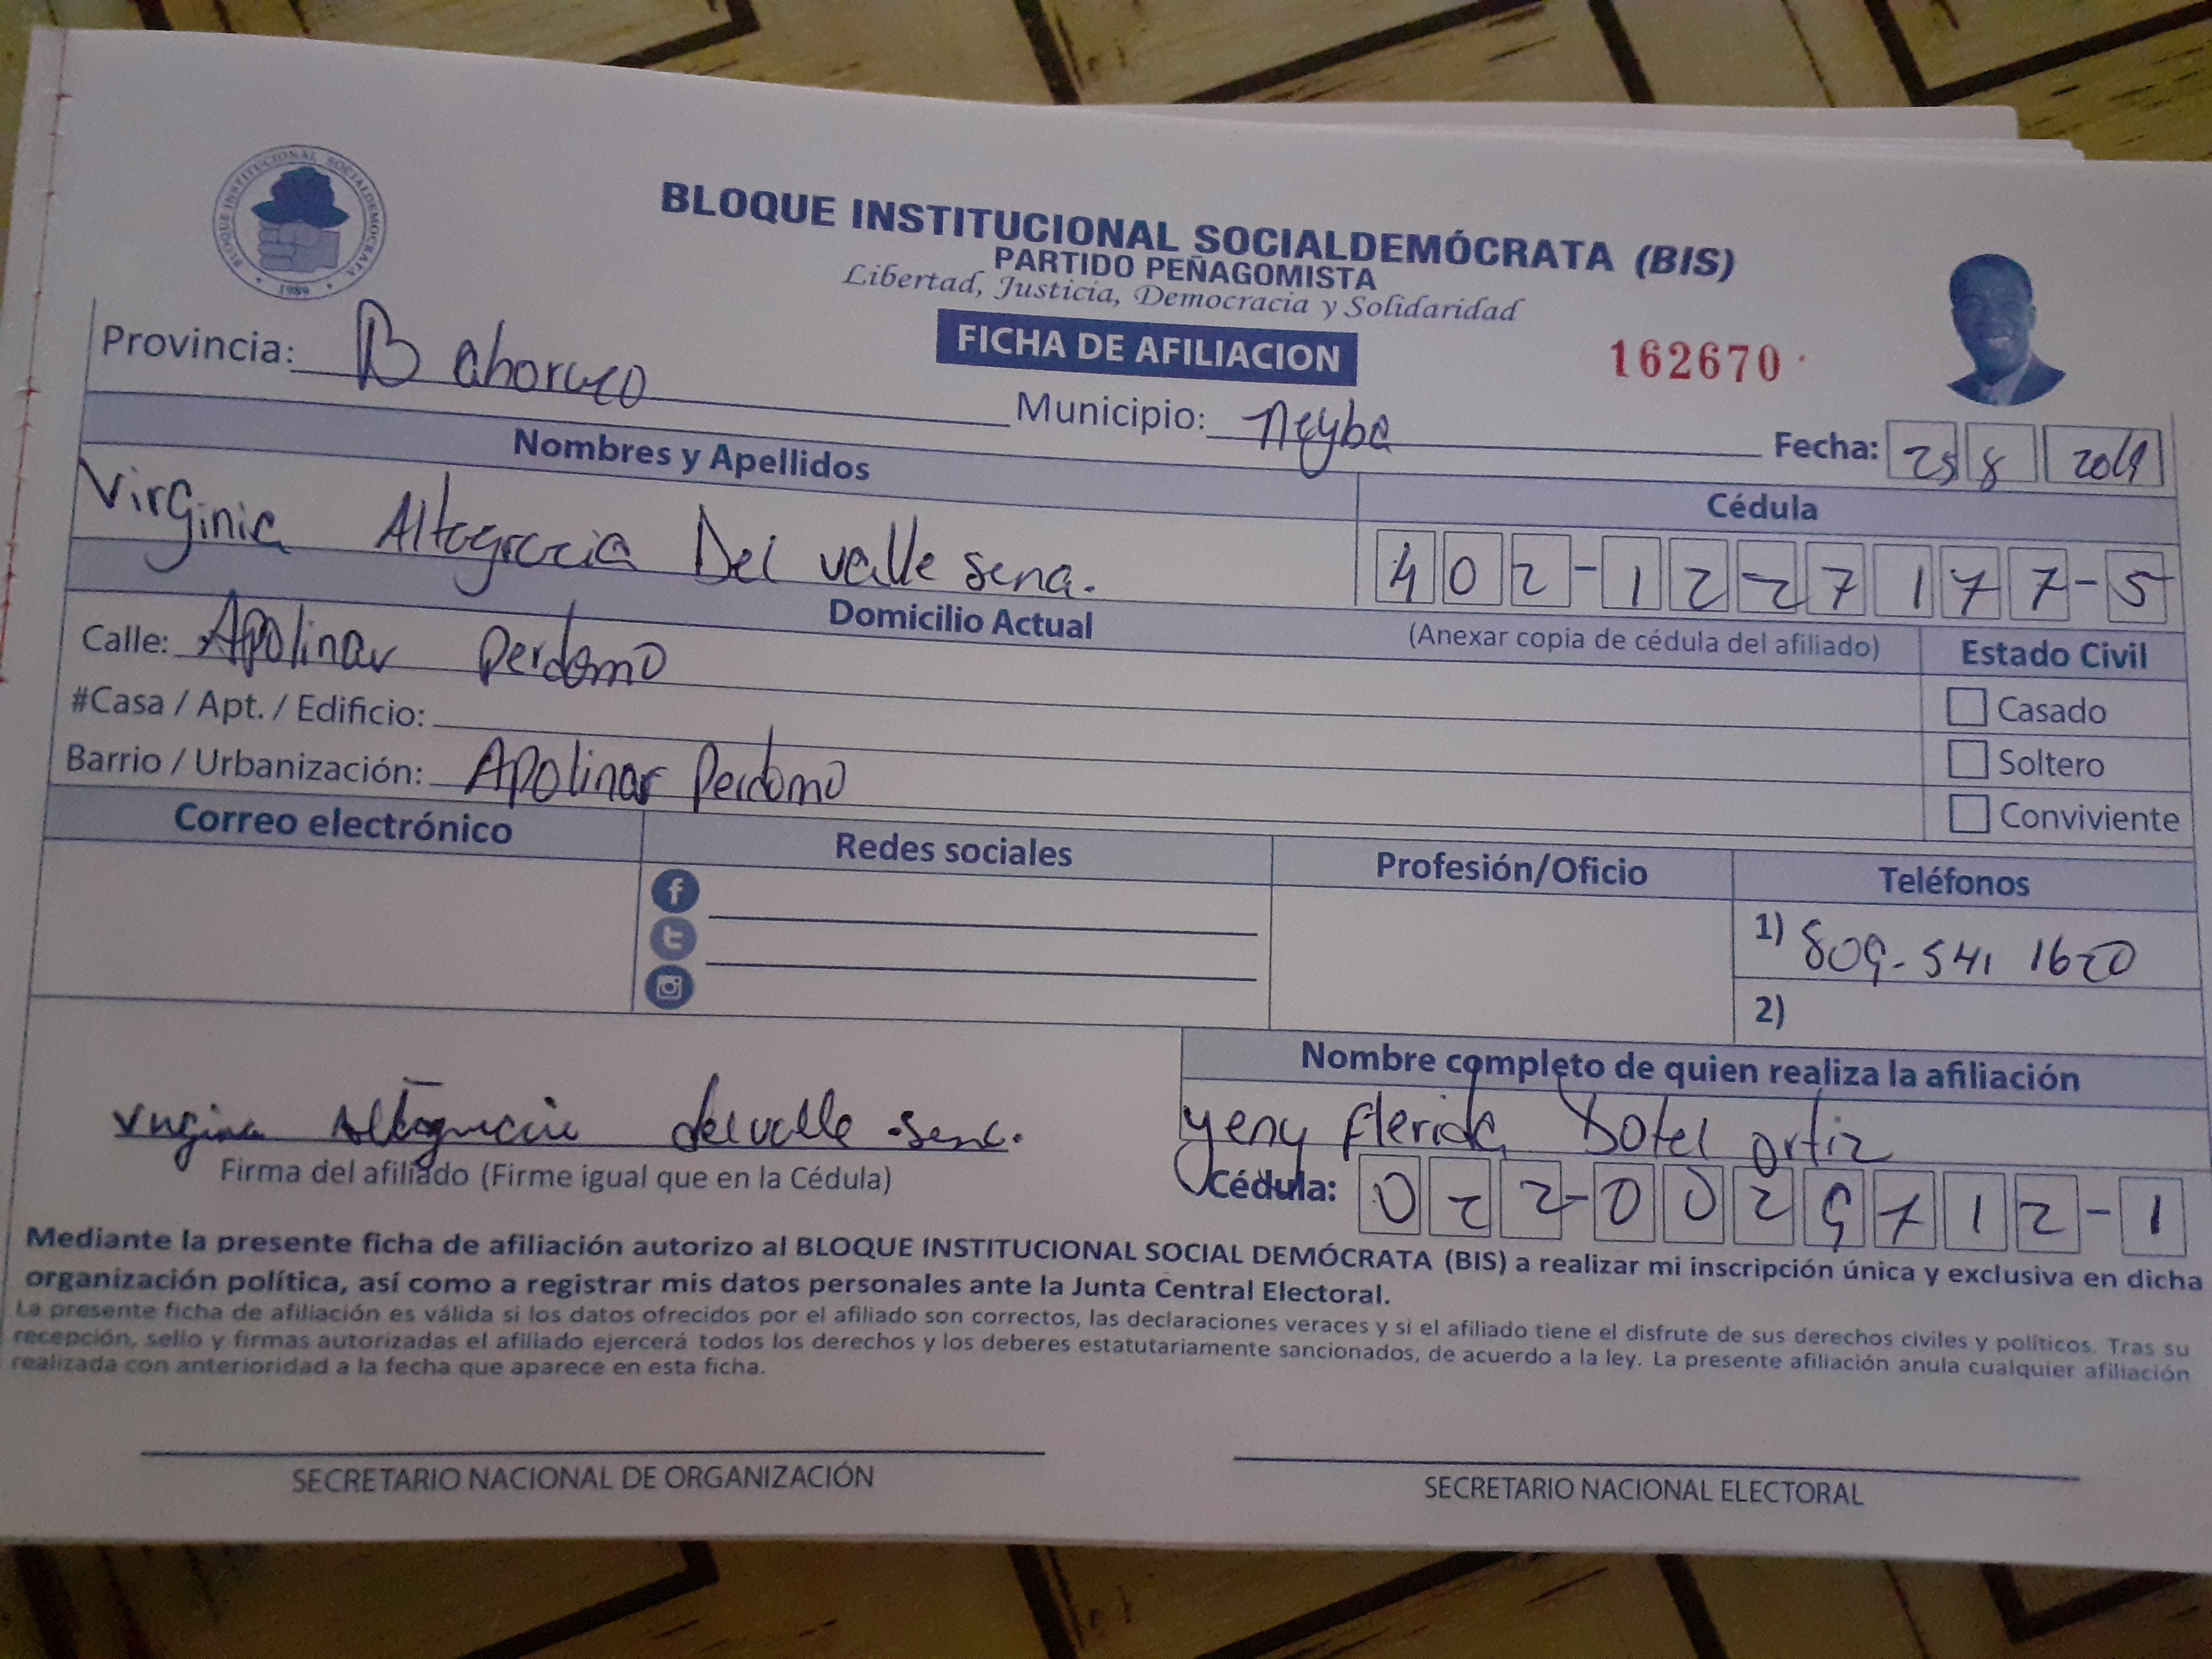 BLOQUE INSTITUCIONAL SOCIALDEMOCRATA
1989
BLOQUE INSTITUCIONAL SOCIALDEMÓCRATA (BIS)
PARTIDO PEÑAGOMISTA
Libertad, Justicia, Democracia y Solidaridad
FICHA DE AFILIACION
162670
Provincia: Bahoruco
Municipio: Neyba
Fecha: 25 8 2019
Nombres y Apellidos
Cédula
Virginia Altagracia Del valle sena.
402-1227177-5
Domicilio Actual
(Anexar copia de cédula del afiliado)
Estado Civil
Calle: Apolinar perdomo
Casado
#Casa / Apt. / Edificio:
Soltero
Barrio / Urbanización: Apolinar Perdomo
Conviviente
Correo electrónico
Redes sociales
Profesión/Oficio
Teléfonos
1) 809-541 1620
2)
Nombre completo de quien realiza la afiliación
Virginia Altagracia del valle sena.
yeny flerida Dotel ortiz
Firma del afiliado (Firme igual que en la Cédula)
Cédula: 022-0029712-1
Mediante la presente ficha de afiliación autorizo al BLOQUE INSTITUCIONAL SOCIAL DEMÓCRATA (BIS) a realizar mi inscripción única y exclusiva en dicha
organización política, así como a registrar mis datos personales ante la Junta Central Electoral.
La presente ficha de afiliación es válida si los datos ofrecidos por el afiliado son correctos, las declaraciones veraces y si el afiliado tiene el disfrute de sus derechos civiles y políticos. Tras su
recepción, sello y firmas autorizadas el afiliado ejercerá todos los derechos y los deberes estatutariamente sancionados, de acuerdo a la ley. La presente afiliación anula cualquier afiliación
realizada con anterioridad a la fecha que aparece en esta ficha.
SECRETARIO NACIONAL DE ORGANIZACIÓN
SECRETARIO NACIONAL ELECTORAL